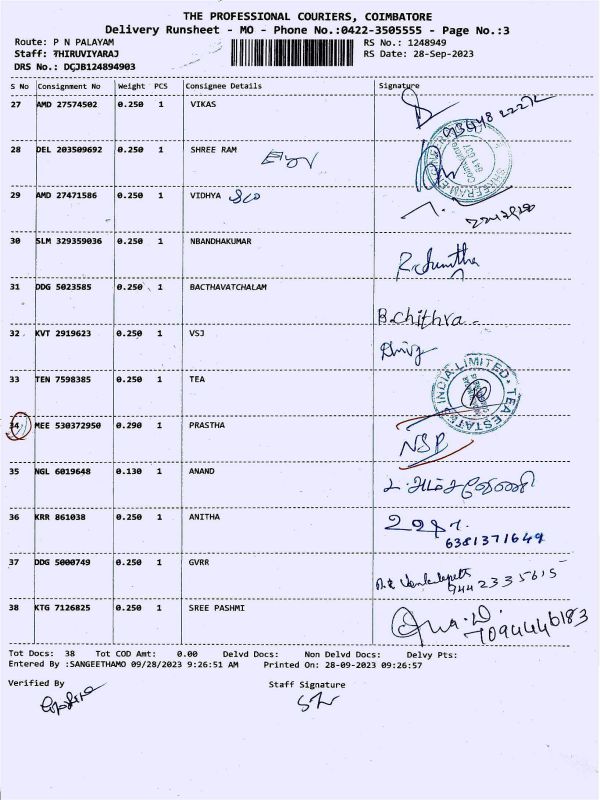 THE PROFESSIONAL COURIERS, COIMBATORE
Delivery Runsheet - MO - Phone No.:0422-3505555 - Page No.:3
Route: P N PALAYAM RS No.: 1248949
Staff: THIRUVIYARAJ RS Date: 28-Sep-2023
DRS No.: DCJB124894903
S No Consignment No Weight PCS Consignee Details Signature
27 AMD 27574502 0.250 1 VIKAS
28 DEL 203509692 0.250 1 SHREE RAM
29 AMD 27471586 0.250 1 VIDHYA
30 SLM 329359036 0.250 1 NBANDHAKUMAR
31 DDG 5023585 0.250 1 BACTHAVATCHALAM
B.chithra
32 KVT 2919623 0.250 1 VSJ
33 TEN 7598385 0.250 1 TEA
INDIA LIMITED TEA ESTATES
34 MEE 530372950 0.290 1 PRASTHA
NSP
35 NGL 6019648 0.130 1 ANAND
36 KRR 861038 0.250 1 ANITHA
6381371649
37 DDG 5000749 0.250 1 GVRR
9442335615
38 KTG 7126825 0.250 1 SREE PASHMI
7094446183
Tot Docs: 38 Tot COD Amt: 0.00 Delvd Docs: Non Delvd Docs: Delvy Pts:
Entered By :SANGEETHAMO 09/28/2023 9:26:51 AM Printed On: 28-09-2023 09:26:57
Verified By Staff Signature